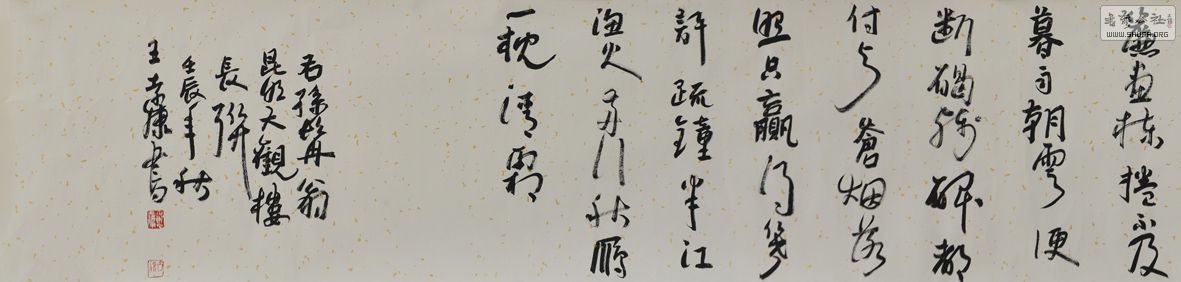 簾畫棟捲不及
暮雨朝雲便
断碣残碑都
付与蒼烟落
照只贏得幾
許疏鐘半江
漁火兩行秋鴈
一枕清霜
右孫髯翁
昆明大觀樓
長聯
壬辰年秋
王康書
書法公社
WWW.SHUFA.ORG